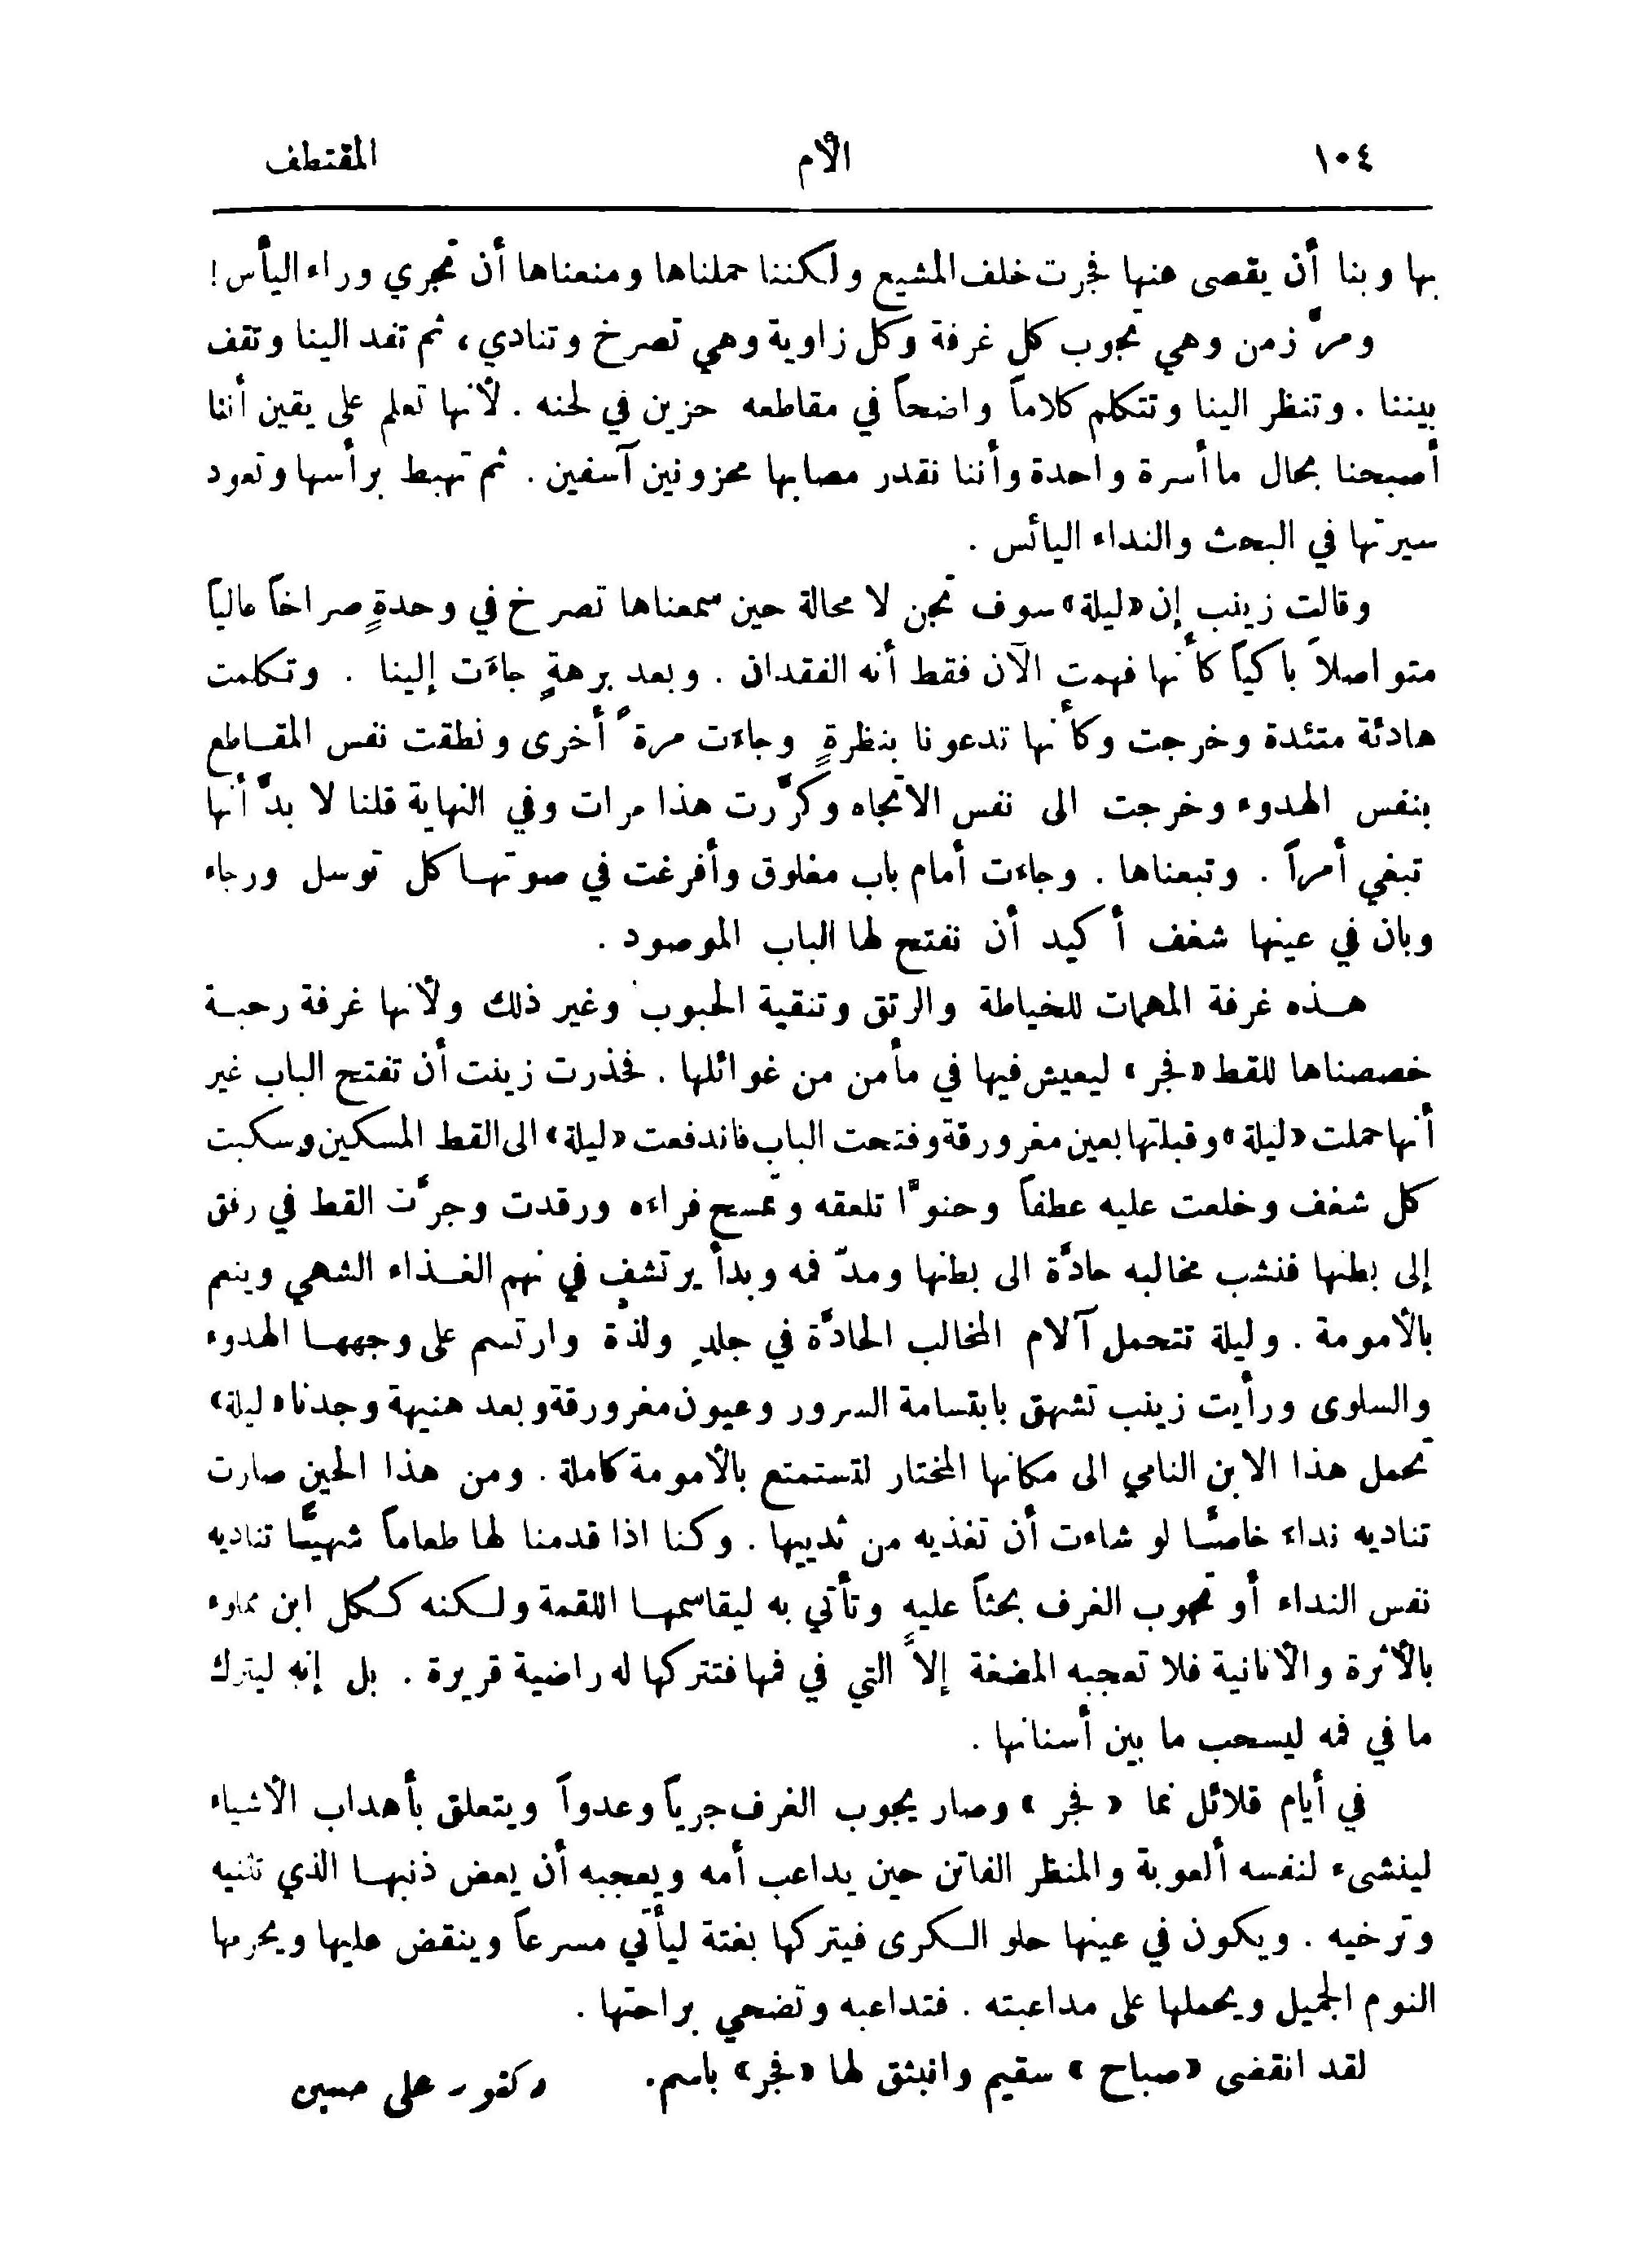 ١٠٤ الأم المقتطف
بها وبنا أن يقصى عنها فجرت خلف المشيع ولكننا حملناها ومنعناها أن تجري وراء اليأس !
ومرَّ زمن وهي تجوب كل غرفة وكل زاوية وهي تصرخ وتنادي ، ثم تفد الينا وتقف
بيننا . وتنظر الينا وتتكلم كلاماً واضحاً في مقاطعه حزين في لحنه . لأنها تعلم على يقين أننا
أصبحنا بحال ما أسرة واحدة وأننا نقدر مصابها محزونين آسفين . ثم تهبط برأسها وتعود
سيرتها في البحث والنداء اليائس .
وقالت زينب إن «ليلة» سوف تجن لا محالة حين سمعناها تصرخ في وحدةٍ صراخاً عالياً
متواصلاً باكياً كأنها فهمت الآن فقط أنه الفقدان . وبعد برهةٍ جاءَت إلينا . وتكلمت
هادئة متئدة وخرجت وكأنها تدعونا بنظرةٍ وجاءت مرةً أخرى ونطقت نفس المقاطع
بنفس الهدوء وخرجت الى نفس الاتجاه وكرَّرت هذا مرات وفي النهاية قلنا لا بدَّ أنها
تبغي أمراً . وتبعناها . وجاءت أمام باب مغلوق وأفرغت في صوتها كل توسل ورجاء
وبان في عينها شغف أكيد أن نفتح لها الباب الموصود .
هذه غرفة المهمات للخياطة والرتق وتنقية الحبوب وغير ذلك ولأنها غرفة رحبة
خصصناها للقط «فجر» ليعيش فيها في مأمن من غوائلها . فحذرت زينت أن تفتح الباب غير
أنها حملت «ليلة» وقبلتها بعين مغرورقة وفتحت الباب فاندفعت «ليلة» الى القط المسكين وسكبت
كل شغف وخلعت عليه عطفاً وحنوًّا تلعقه وتمسح فراءه ورقدت وجرَّت القط في رفق
إلى بطنها فنشب مخالبه حادَّة الى بطنها ومدّ فمه وبدأ يرتشف في نهم الغذاء الشهي وينعم
بالأمومة . وليلة تتحمل آلام المخالب الحادَّة في جلدٍ ولذة وارتسم على وجهها الهدوء
والسلوى ورأيت زينب تشهق بابتسامة السرور وعيون مغرورقة وبعد هنيهة وجدنا «ليلة»
تحمل هذا الابن النامي الى مكانها المختار لتستمتع بالأمومة كاملة . ومن هذا الحين صارت
تناديه نداءَ خاصًّا لو شاءت أن تغذيه من ثدييها . وكنا اذا قدمنا لها طعاماً شهيًّا تناديه
نفس النداء أو تجوب الغرف بحثاً عليهِ وتأتي به ليقاسمها اللقمة ولكنه ككل ابن مملوء
بالأثرة والأنانية فلا تعجبه المضغة إلاَّ التي في فمها فتتركها له راضية قريرة . بل إنه ليترك
ما في فمه ليسحب ما بين أسنانها .
في أيام قلائل نما « فجر » وصار يجوب الغرف جرياً وعدواً ويتعلق بأهداب الأشياء
لينشىء لنفسه ألعوبة والمنظر الفاتن حين يداعب أمه ويعجبه أن يعض ذنبها الذي تثنيه
وترخيه . ويكون في عينها حلو الكرى فيتركها بغتة ليأتي مسرعاً وينقض عليها ويحرمها
النوم الجميل ويحملها على مداعبته . فتداعبه وتضحي براحتها .
لقد انقضى «صباح» سقيم وانبثق لها «فجر» باسم. دكتور على حسين